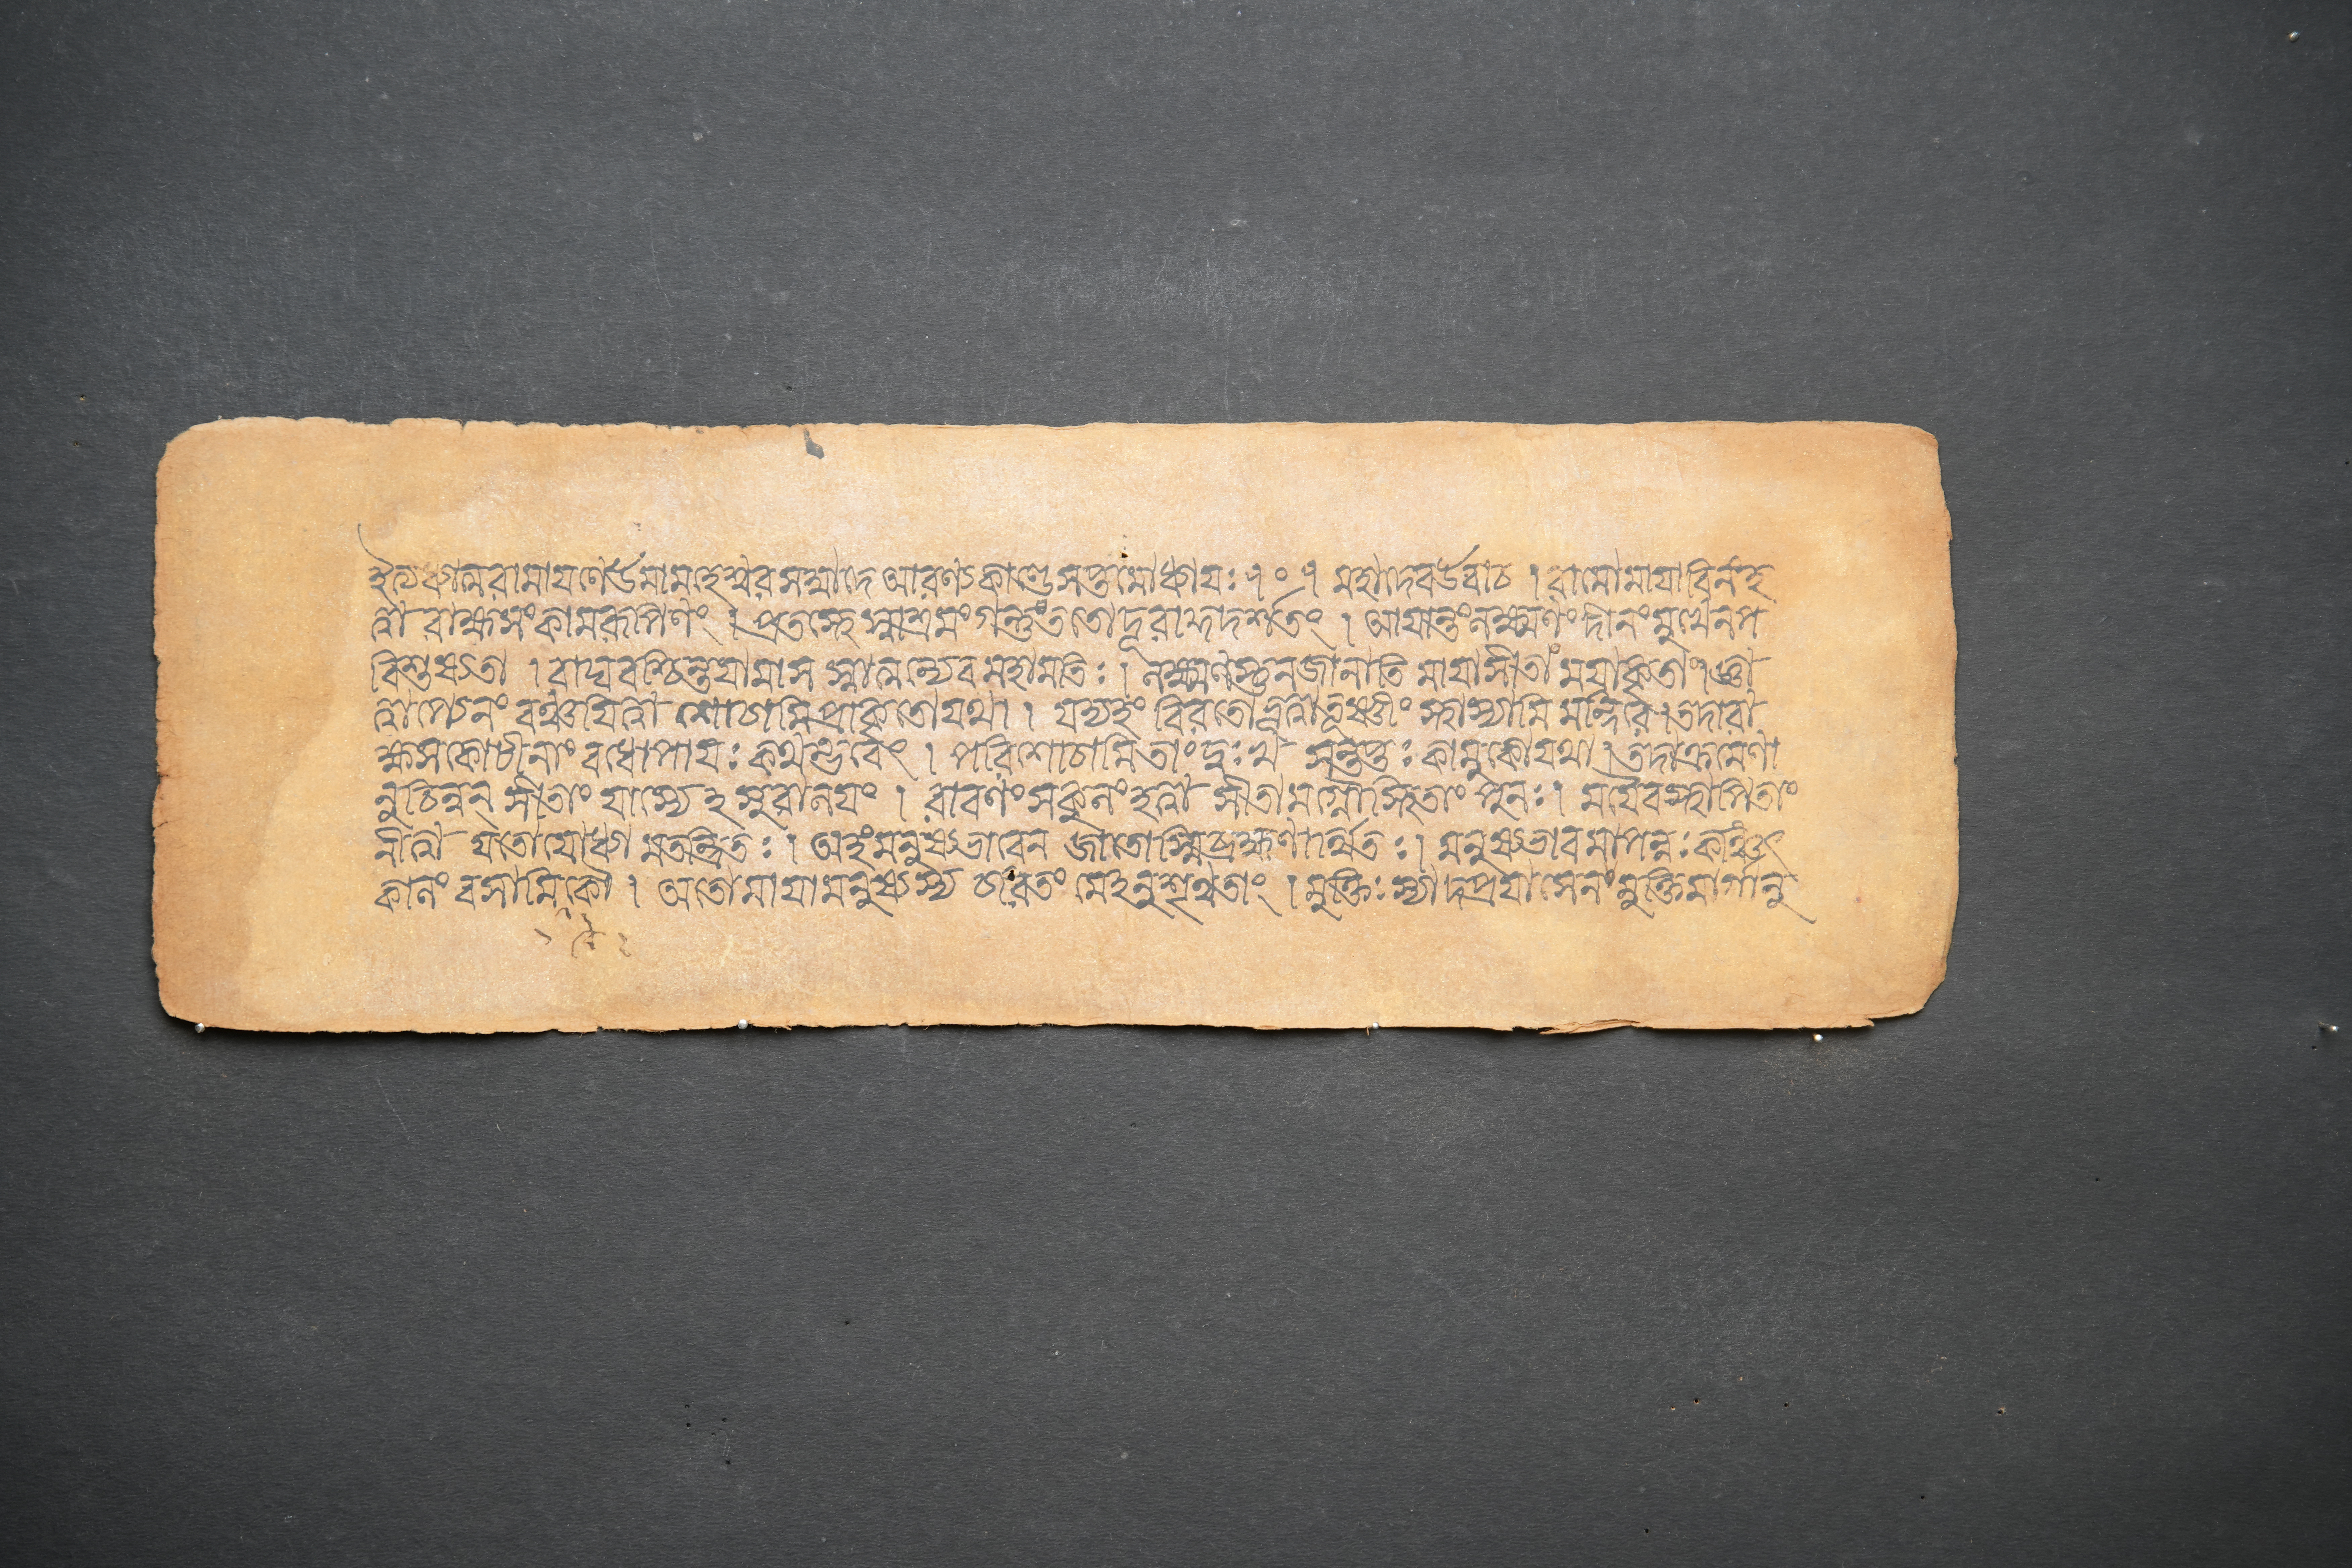 ইত্যধ্যাত্মরামায়ণেঊমামহেশ্বরসম্বাদে আরণ্যকাণ্ডেসপ্তমোধ্যায়ঃ৭০৭ মহাদেবউবাচ । রামোমায়াবিনংহ
ত্বা রাক্ষসংকামরূপিণং । প্রতস্থেস্বাশ্রমংগন্তুংততোদূরাদ্দদর্শতং । আয়ান্তংলক্ষ্মণংদীনংমুখেনপ
রিশুষ্যতা । রাঘবশ্চিন্তয়ামাস স্বাত্মন্যেবমহামতিঃ । লক্ষ্মণস্তুনজানাতি মায়াসীতাং ময়াকৃতাং । জ্ঞা
ত্বাপ্যেনং বঞ্চয়িত্বা শোচামিপ্রাকৃতোযথা । যদ্যহং বিরতোভূত্বাতূষ্ণীং স্থাস্যামি মন্দিরে । তদারা
ক্ষসকোটীনাং বধোপায়ঃ কথম্ভবেৎ । পরিশোচামিতাংদুঃখ সন্তপ্তঃ কামুকোযথা । তদাক্রমেণা
নুচিন্বন্ সীতাং যাস্যেহসুরালয়ং । রাবণং সকুলংহত্বা সীতামগ্নৌস্থিতাং পুনঃ । ময়ৈবস্থাপিতাং
নীত্বা যাতোযোধ্যা মতন্দ্রিতঃ । অহংমনুষ্যভাবেন জাতোস্মিব্রহ্মণার্থিতঃ । মনুষ্যভাবমাপন্নঃকিঞ্চিৎ
কালং বসামিকৌ । ততোমায়ামনুষ্যস্য চরিতং মেহনুশৃণ্বতাং । মুক্তিঃ স্যাদপ্রয়াসেনং মুক্তিমার্গানু